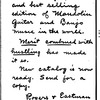 and best selling
edition of Mandolin
Guitar and Banjo
music in the world.
Merit combined with
hustling has made
it so.
New catalog is now
ready. Send for a
copy.
Rowers & Eastman